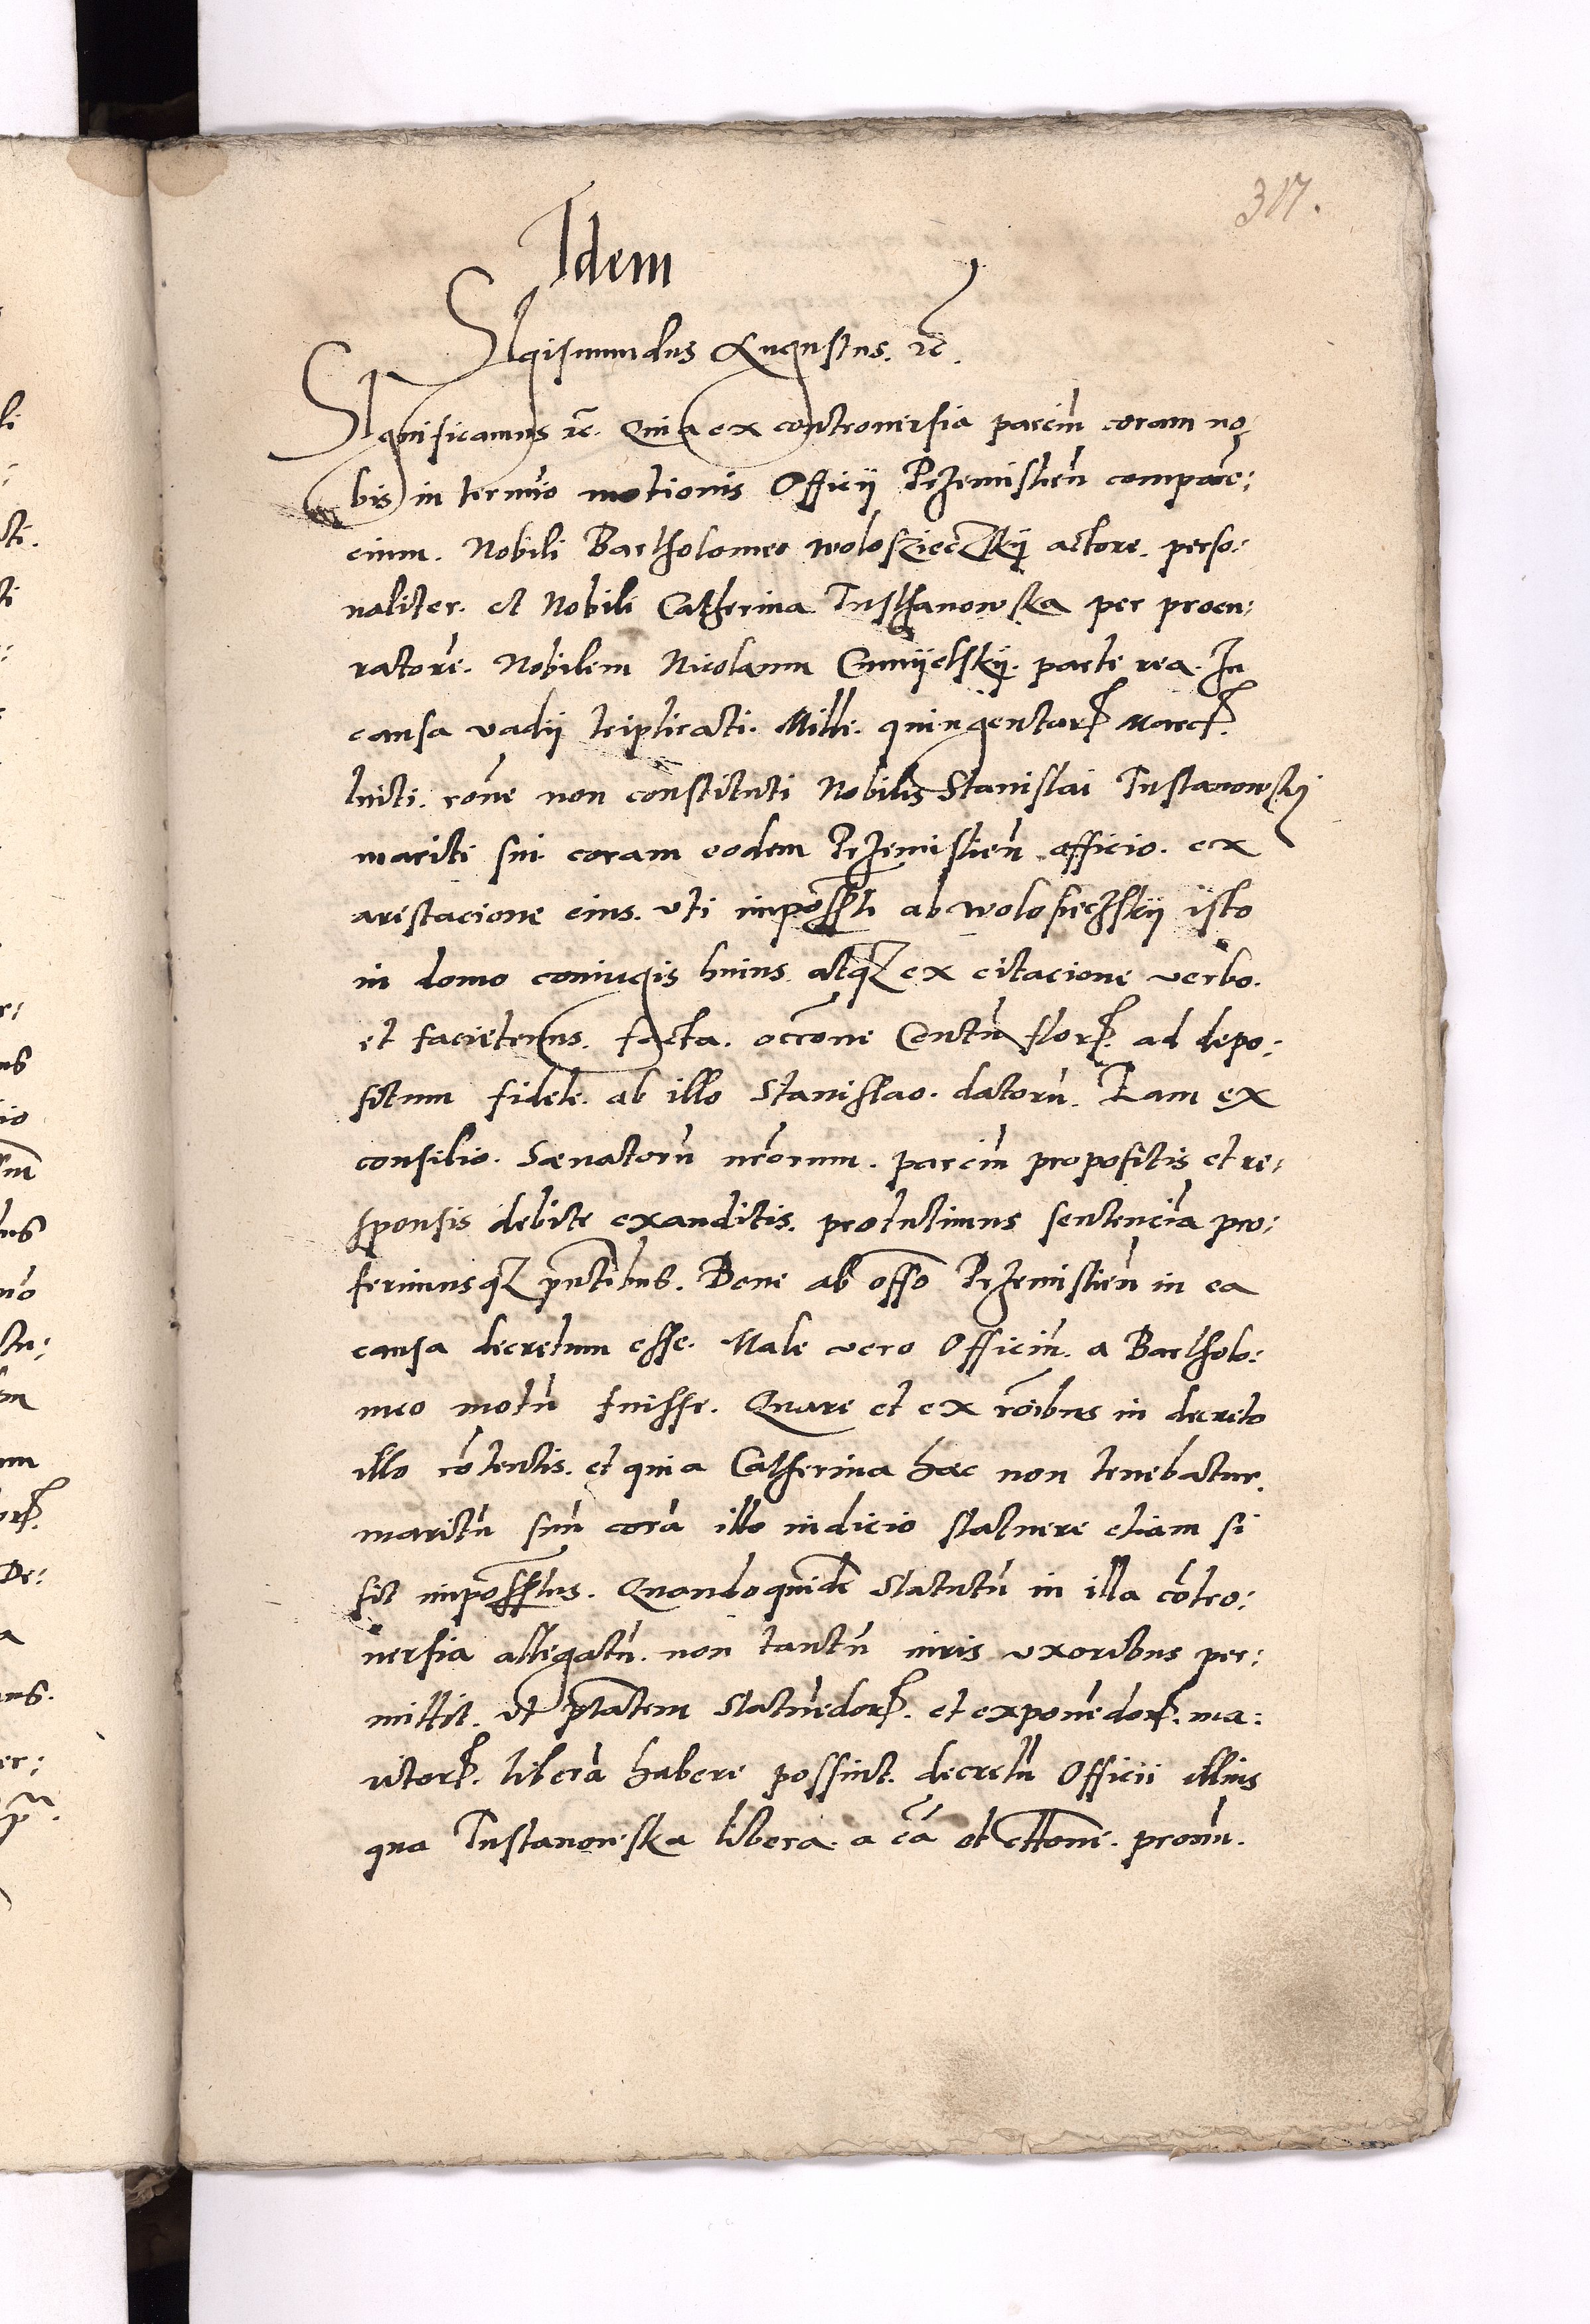 317.
Idem
Sigismundus Augustus. rc̄.
Significamus rc̄. Quia ex controuersia parciū coram no¬
bis in termīo motionis Officij Przemislien̄ comparē:
cium. Nobili Bartholomeo wolosziecZkij actore. perso:
naliter. et Nobili Catherina Tusthanowska per procu:
ratorē. Nobilem Nicolaum parte rea. In
causa vadij triplicati. Mille. quingentarꝝ marcꝝ.
luiti. rōne non constituti Nobilis Stanislai Tustanowskij
mariti sui. coram eodem Przemislien̄ officio. ex
arestacione eius. vti imposs̄ti ab wolosieczskij isto
in domo coniugis huius. atqȝ ex citacione verbo.
et facietenus. facta. occr̄one Centū florꝝ. ad depo:
situm fidele. ab illo Stanislao. datorū. Eam ex
consilio. Senatorū nr̄orum. parciū propositis et re:
sponsis debite exauditis. protulimus sentenciā pro:
ferimusqȝ pn̄tibus. Bene ab off̄o Przemislien̄ in ea
causa decretum esse. Male vero Officiū. a Bartholo:
meo motū fuisse. Quare et ex rōibus in decreto
illo cōtentis. et quia Catherina hac non tenebatur.
maritū suū corā illo iudicio statuere etiam si
sit imposs̄tus. Quandoquidē Statutū in illa cōtro:
uersia allegatū. non tantū iuris vxoribus per:
mittit. vt ptātem statuēdorꝝ. et exponēdorꝝ. ma:
ritorꝝ. liberā habere possint. decretū Officii illius
quo Tustanowska libera. a cā et pronū.